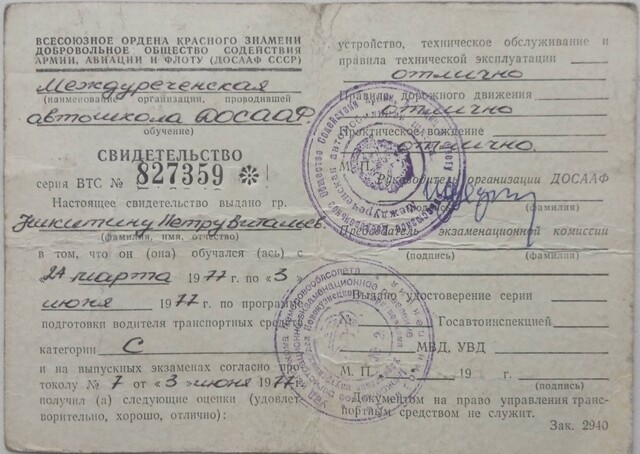 ВСЕСОЮЗНОЕ ОРДЕНА КРАСНОГО ЗНАМЕНИ
ДОБРОВОЛЬНОЕ ОБЩЕСТВО СОДЕЙСТВИЯ
АРМИИ, АВИАЦИИ И ФЛОТУ (ДОСААФ СССР)
Междуреченская
(наименование организации, проводившей
автошкола ДОСААФ
обучение)
СВИДЕТЕЛЬСТВО
серия ВТС № 827359 ✻
Настоящее свидетельство выдано гр.
Никитину Петру Витальев.
(фамилия, имя, отчество)
в том, что он (она) обучался (ась) с
«24 марта 1977 г. по «3»
июня 1977 г. по программе
подготовки водителя транспортных средств
категории С
и на выпускных экзаменах согласно про-
токолу № 7 от «3» июня 1977 г.
получил (а) следующие оценки (удовлет-
ворительно, хорошо, отлично):
устройство, техническое обслуживание и
правила технической эксплуатации
отлично
Правила дорожного движения
отлично
Практическое вождение
отлично.
М. П.
Руководитель организации ДОСААФ
(фамилия)
Председатель экзаменационной комиссии
(подпись) (фамилия)
Выдано удостоверение серии
№ Госавтоинспекцией
МВД, УВД
М. П. 19 г.
(подпись)
Документом на право управления транс-
портным средством не служит.
Зак. 2940